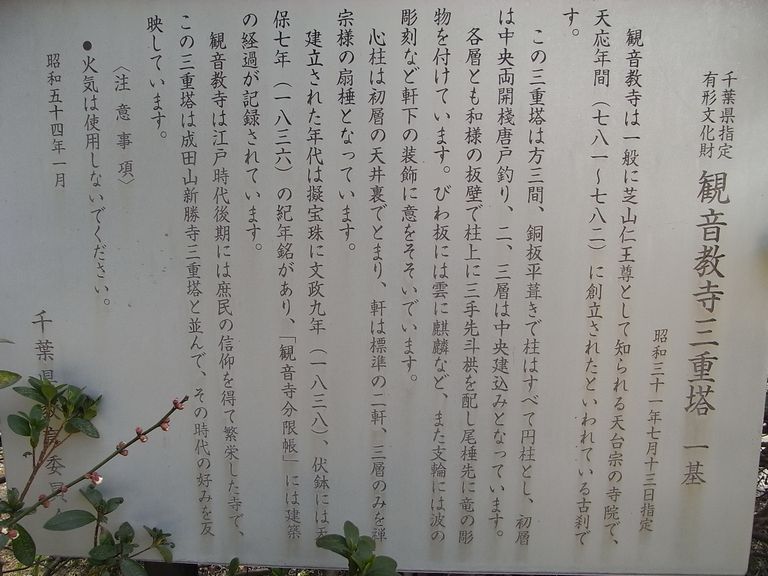 千葉県指定
有形文化財
観音教寺三重塔 一基
昭和三十一年七月十三日指定
観音教寺は一般に芝山仁王尊として知られる天台宗の寺院で、
天応年間（七八一～七八二）に創立されたといわれている古刹で
す。
この三重塔は方三間、銅板平葺きで柱はすべて円柱とし、初層
は中央両開棧唐戸釣り、二、三層は中央建込みとなっています。
各層とも和様の板壁で柱上に三手先斗栱を配し尾棰先に竜の彫
物を付けています。びわ板には雲に麒麟など、また支輪には波の
彫刻など軒下の装飾に意をそそいでいます。
心柱は初層の天井裏でとまり、軒は標準の二軒、三層のみを禅
宗様の扇棰となっています。
建立された年代は擬宝珠に文政九年（一八三八）、伏鉢には天
保七年（一八三六）の紀年銘があり、「観音寺分限帳」には建築
の経過が記録されています。
観音教寺は江戸時代後期には庶民の信仰を得て繁栄した寺で、
この三重塔は成田山新勝寺三重塔と並んで、その時代の好みを反
映しています。
〈注意事項〉
●火気は使用しないでください。
昭和五十四年一月
千葉県教育委員会